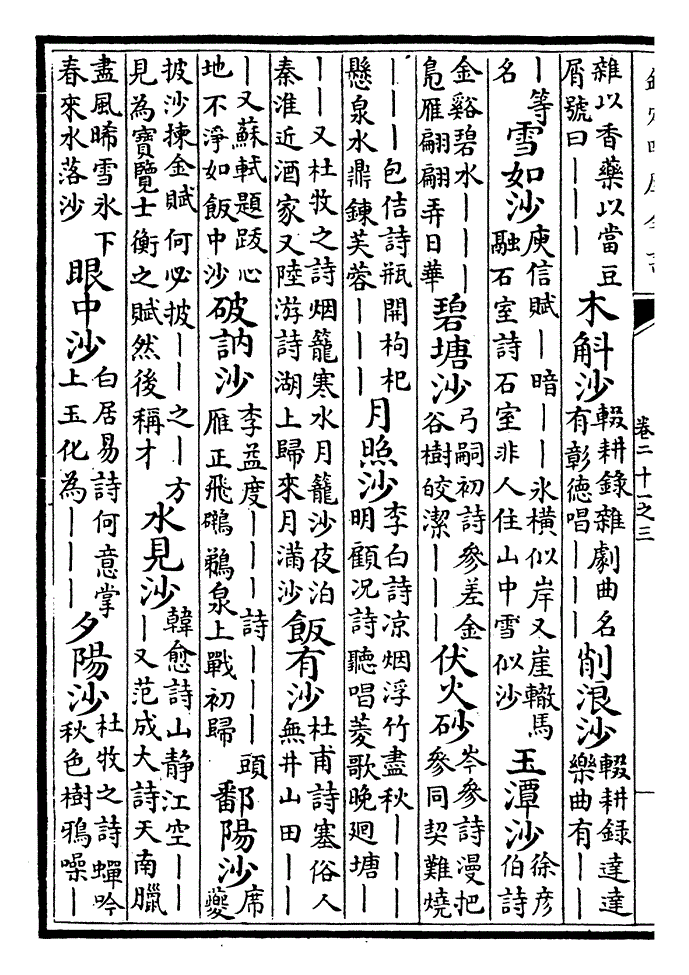 卷二十一之三
雜以香藥以當豆
屑號曰｜｜｜
木斛沙
輟耕錄雜劇曲名
有彰徳唱｜｜｜
削浪沙
輟耕録達達
樂曲有｜｜
｜等
名
雪如沙
庾信賦｜暗｜｜氷橫似岸又崖轍馬
融石室詩石室非人住山中雪似沙
玉潭沙
徐彦
伯詩
金谿碧水｜｜｜
鳬雁翩翩弄日華
碧塘沙
弓嗣初詩參差金
谷樹皎潔｜｜｜
伏火砂
岑參詩漫把
參同契難燒
｜｜｜包佶詩瓶開枸杞
懸泉水鼎鍊芙蓉｜｜｜
月照沙
李白詩凉烟浮竹盡秋｜｜｜
明顧况詩聽唱菱歌晚廻塘｜
｜｜又杜牧之詩烟籠寒水月籠沙夜泊
秦淮近酒家又陸游詩湖上歸來月滿沙
飯有沙
杜甫詩塞俗人
無井山田｜｜
｜又蘇軾題跋心
地不淨如飯中沙
破訥沙
李益度｜｜｜詩｜｜｜頭
雁正飛鸊鵜泉上戰初歸
鄱陽沙
席
夔
披沙揀金賦何必披｜｜之｜方
見為寳覽士衡之賦然後稱才
水見沙
韓愈詩山静江空｜｜
｜又范成大詩天南臘
盡風晞雪氷下
春來水落沙
眼中沙
白居易詩何意掌
上玉化為｜｜｜
夕陽沙
杜牧之詩蟬吟
秋色樹鴉噪｜